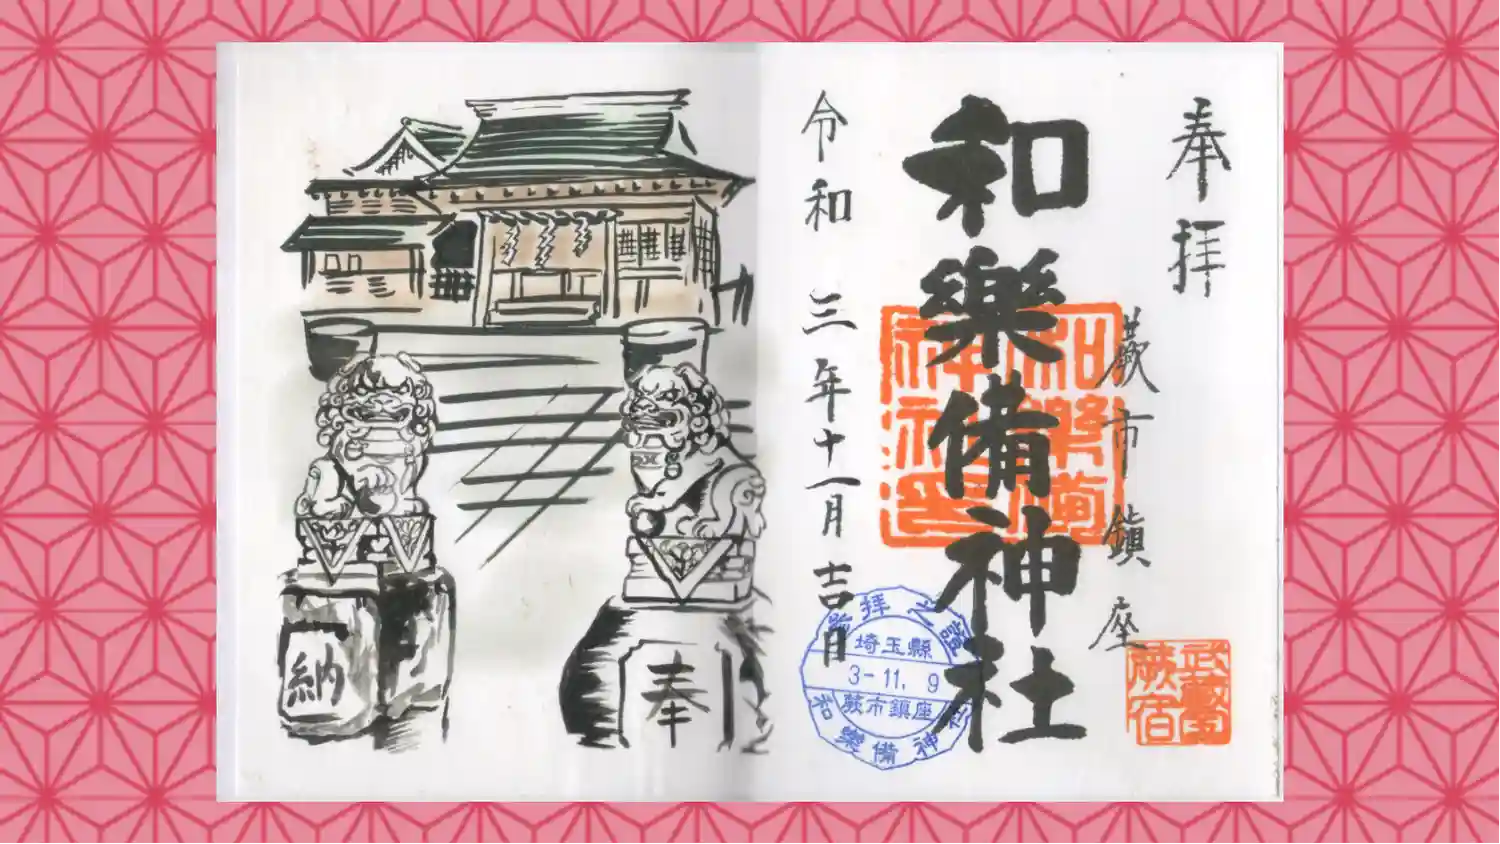 奉拝
蕨市鎮座
和樂備神社
令和三年十一月吉日
和樂備
神社印
武蔵
蕨宿
参拝之證
埼玉縣
3-11. 9
蕨市鎮座
和樂備神社
奉
納